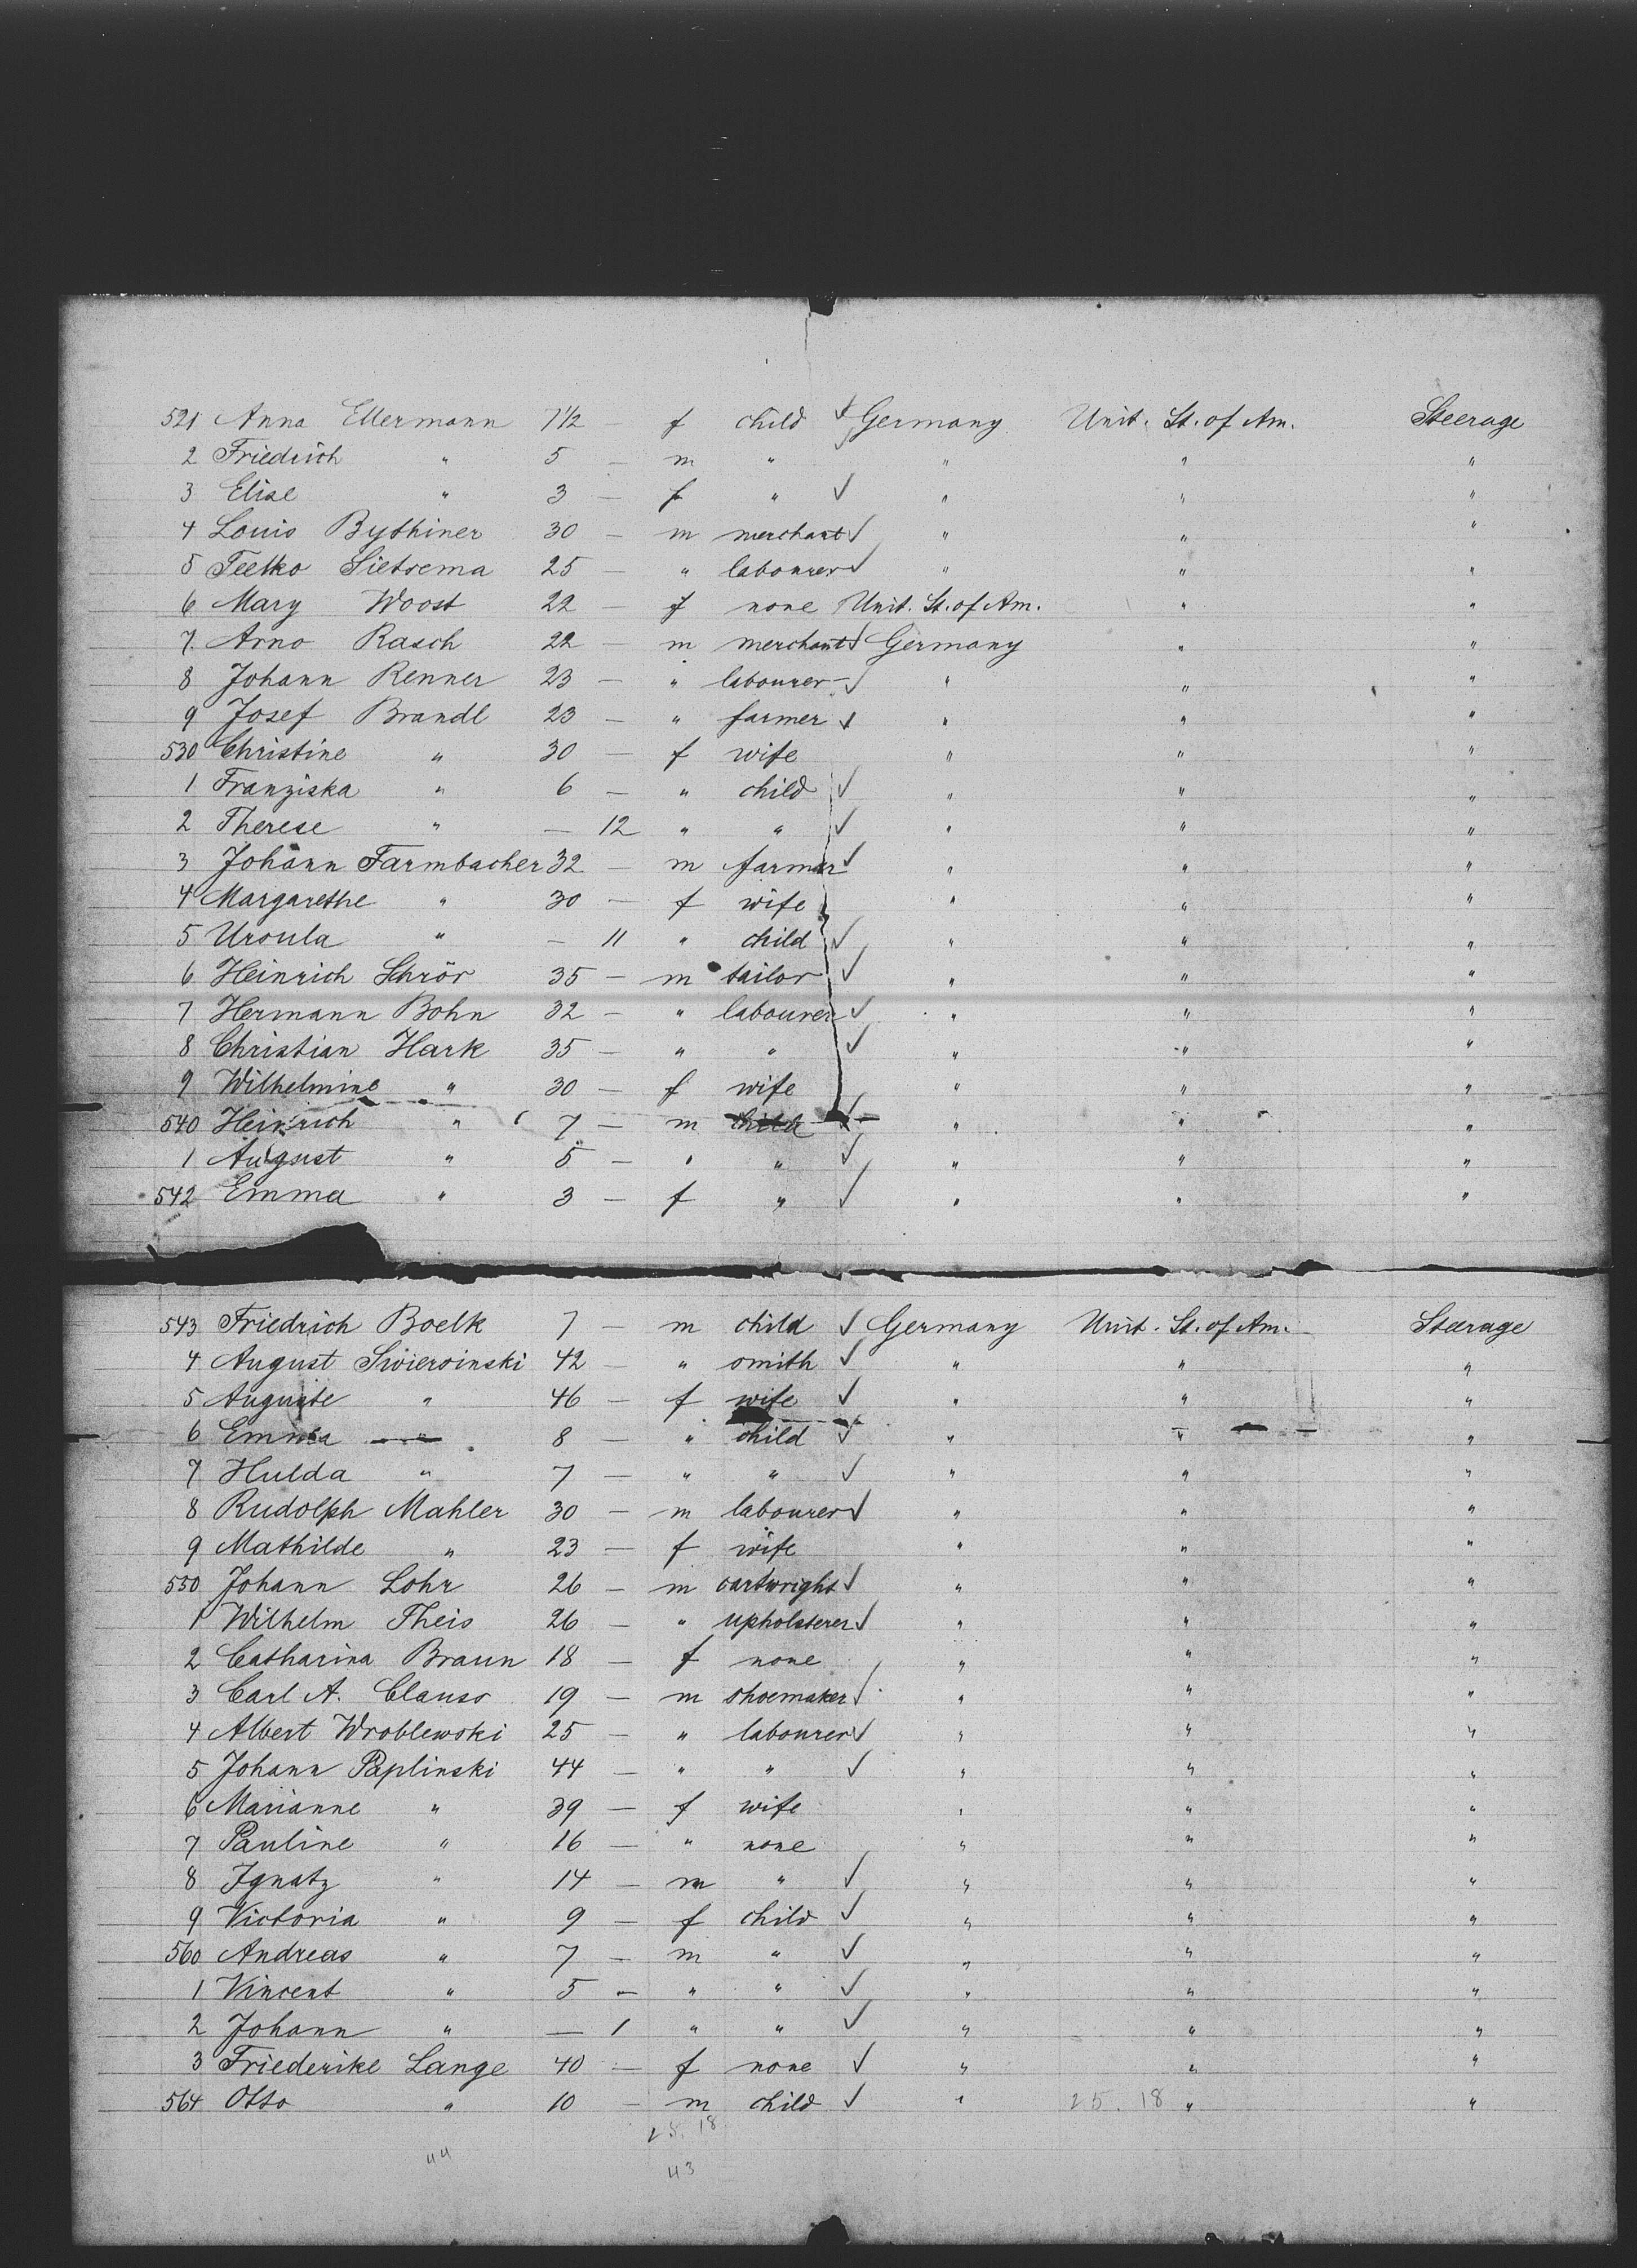 521 Anna Ellermann 7 1/2 — f child ✓ Germany Unit. St. of Am. Steerage
2 Friedrich " 5 — m " ✓ " " "
3 Elise " 3 — f " ✓ " " "
4 Louis Bythiner 30 — m merchant ✓ " " "
5 Teelko Sietsema 25 — " labourer ✓ " " "
6 Mary Woost 22 — f none Unit. St. of Am. " "
7. Arno Rasch 22 — m merchant ✓ Germany " "
8 Johann Renner 23 — " labourer ✓ " " "
9 Josef Brandl 23 — " farmer ✓ " " "
530 Christine " 30 — f wife " " "
1 Franziska " 6 — " child ✓ " " "
2 Therese " — 12 " " ✓ " " "
3 Johann Farmbacher 32 — m farmer ✓ " " "
4 Margarethe " 30 — f wife " " "
5 Ursula " — 11 " child ✓ " " "
6 Heinrich Schrör 35 — m tailor ✓ " " "
7 Hermann Bohn 32 — " labourer ✓ " " "
8 Christian Hark 35 — " " ✓ " " "
9 Wilhelmine " 30 — f wife " " "
540 Heinrich " 7 — m child ✓ " " "
1 August " 5 — " " ✓ " " "
542 Emma " 3 — f " ✓ " " "
543 Friedrich Boelk 7 — m child ✓ Germany Unit. St. of Am. Steerage
4 August Swiersinski 42 — " smith ✓ " " "
5 Auguste " 46 — f wife ✓ " " "
6 Emma " 8 — " child ✓ " " "
7 Hulda " 7 — " " ✓ " " "
8 Rudolph Mahler 30 — m labourer ✓ " " "
9 Mathilde " 23 — f wife " " "
550 Johann Lohr 26 — m cartwright ✓ " " "
1 Wilhelm Theis 26 — " upholsterer ✓ " " "
2 Catharina Braun 18 — f none " " "
3 Carl A. Clauss 19 — m shoemaker ✓ " " "
4 Albert Wroblewski 25 — " labourer ✓ " " "
5 Johann Paplinski 44 — " " ✓ " " "
6 Marianne " 39 — f wife " " "
7 Pauline " 16 — " none " " "
8 Ignatz " 14 — m " ✓ " " "
9 Victoria " 9 — f child ✓ " " "
560 Andreas " 7 — m " ✓ " " "
1 Vincent " 5 — " " ✓ " " "
2 Johann " — 1 " " ✓ " " "
3 Friederike Lange 40 — f none ✓ " " "
564 Otto " 10 — m child ✓ " 25. 18 " "
25. 18
44 43